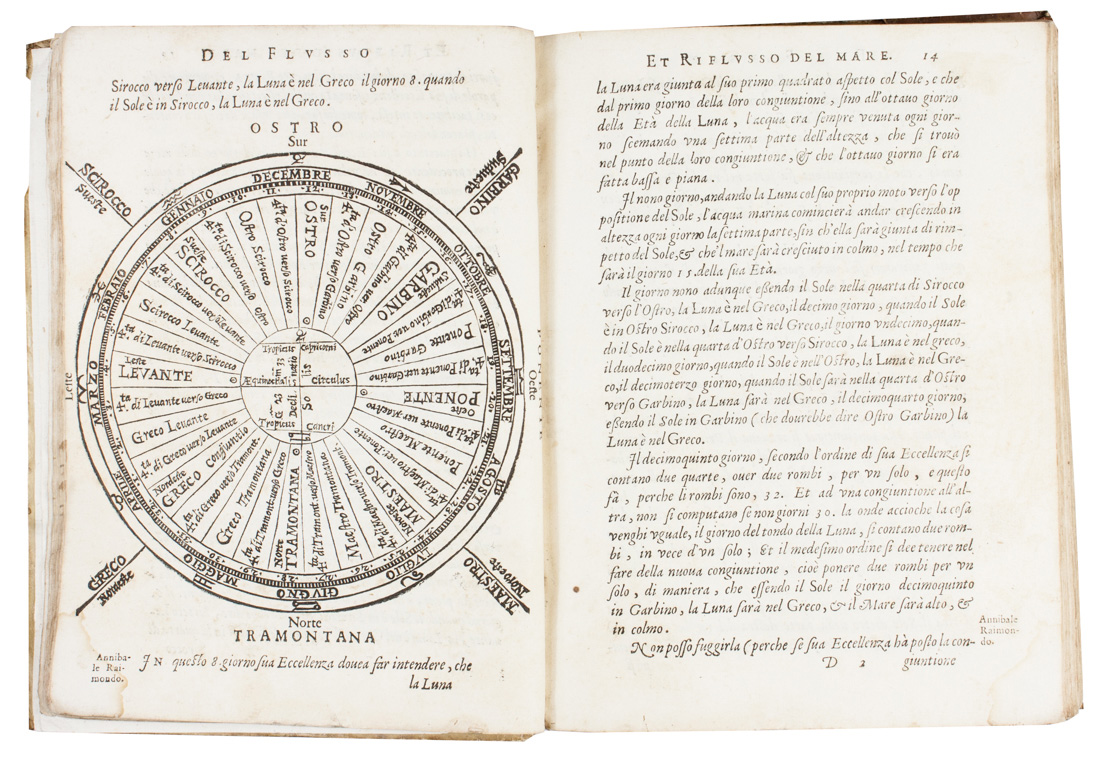 DEL FLVSSO
Sirocco verso Leuante, la Luna è nel Greco il giorno 8. quando
il Sole è in Sirocco, la Luna è nel Greco.
OSTRO
Sur
SCIROCCO
sueste
GARBINO
Suduueste
DECEMBRE
NOVEMBRE
OTTOBRE
SETTEMBRE
AGOSTO
LUGLIO
GIVGNO
MAGGIO
APRILE
MARZO
FEBRAIO
GENNAIO
Sur
OSTRO
4.ta d'Ostro uerso Garbino
Ostro Garbino
4.ta di Garbino uer Ostro
GARBINO
4.ta di Garbino uer Ponente
Ponente Garbino
4.ta di Ponente uer Garbino
Oeste
PONENTE
4.ta di Ponente uer Maestro
Ponente Maestro
4.ta di Maestro uer Ponente
MAESTRO
Maestro Tramontana
4.ta di Tramont. uerso Maestro
Norte
TRAMONTANA
4.ta di Tramont. uerso Greco
Greco Tramontana
4.ta di Greco uerso Tramont.
Nordeste
GRECO Congiuntio
4.ta di Greco uerso Leuante
Greco Leuante
4.ta di Leuante uerso Greco
Leste
LEVANTE
4.ta di Leuante uerso Scirocco
Scirocco Leuante
4.ta di Scirocco uerso Leuante
Sueste
SCIROCCO
4.ta di Scirocco uerso Ostro
Ostro Scirocco
4.ta d'Ostro uerso Scirocco
Tropicus Capricorni
Æquinoctialis Circulus
Tropicus Cancri
Leste
Oeste
GRECO
Nordeste
MAESTRO
Noroeste
Norte
TRAMONTANA
Anniba-
le Rai-
mondo.
IN questo 8. giorno sua Eccellenza douea far intendere, che
la Luna
ET RIFLVSSO DEL MARE. 14
la Luna era giunta al suo primo quadrato aspetto col Sole, e che
dal primo giorno della loro congiuntione, sino all'ottauo giorno
della Età della Luna, l'acqua era sempre venuta ogni gior-
no scemando vna settima parte dell'altezza, che si trouò
nel punto della loro congiuntione, & che l'ottauo giorno si era
fatta bassa e piana.
Il nono giorno, andando la Luna col suo proprio moto verso l'op
positione del Sole, l'acqua marina comincierà andar crescendo in
altezza ogni giorno la settima parte, sin ch'ella sarà giunta di rim-
petto del Sole, & che'l mare sarà cresciuto in colmo, nel tempo che
sarà il giorno 15. della sua Età.
Il giorno nono adunque essendo il Sole nella quarta di Sirocco
verso l'Ostro, la Luna è nel Greco, il decimo giorno, quando il Sole
è in Ostro Sirocco, la Luna è nel Greco, il giorno vndecimo, quan-
do il Sole è nella quarta d'Ostro verso Sirocco, la Luna è nel greco,
il duodecimo giorno, quando il Sole è nell'Ostro, la Luna è nel Gre-
co, il decimoterzo giorno, quando il Sole sarà nella quarta d'Ostro
verso Garbino, la Luna sarà nel Greco, il decimoquarto giorno,
essendo il Sole in Garbino (che dourebbe dire Ostro Garbino) la
Luna è nel Greco.
Il decimoquinto giorno, secondo l'ordine di sua Eccellenza si
contano due quarte, ouer due rombi, per vn solo, e questo
fà, perche li rombi sono, 32. Et ad vna congiuntione all'al-
tra, non si computano se non giorni 30. la onde accioche la cosa
venghi vguale, il giorno del tondo della Luna, si contano due rom-
bi, in vece d'vn solo; Et il medesimo ordine si dee tenere nel
fare della nuoua congiuntione, cioè ponere due rombi per vn
solo, di maniera, che essendo il Sole il giorno decimoquinto
in Garbino, la Luna sarà nel Greco, & il Mare sarà alto, &
in colmo.
Non posso fuggirla (perche se sua Eccellenza hà posto la con-
Annibale
Raimon-
do.
D 2 giuntione